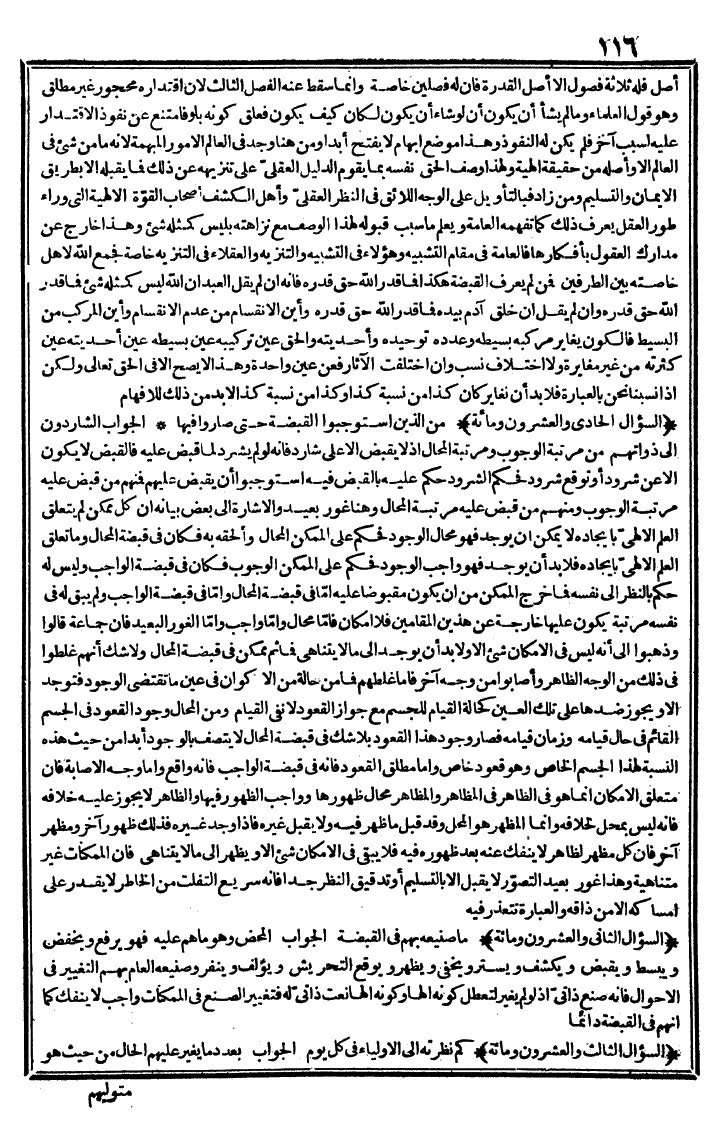 ١١٦
أصل فله ثلاثة فصول الا أصل القدرة فان له فصلين خاصة وانما سقط عنه الفصل الثالث لان اقتداره محجور غير مطلق
وهو قول العلماء وما لم يشأ أن يكون أن لو شاء أن يكون لكان كيف يكون فعلق كونه بلو فامتنع عن نفوذ الاقتدار
عليه لسبب آخر فلم يكن له النفوذ وهذا موضع ابهام لا يفتح أبدا ومن هنا وجد فى العالم الامور المبهمة لانه ما من شئ فى
العالم الا وأصله من حقيقة الهية ولهذا وصف الحق نفسه بما يقوم الدليل العقلى على تنزيهه عن ذلك فما يقبله الا بطريق
الايمان والتسليم ومن زاد فبالتأويل على الوجه اللائق فى النظر العقلى وأهل الكشف أصحاب القوة الالهية التى وراء
طور العقل يعرف ذلك كما تفهمه العامة ويعلم ما سبب قبوله لهذا الوصف مع نزاهته بليس كمثله شئ وهذا خارج عن
مدارك العقول بأفكارها فالعامة فى مقام التشبيه وهؤلاء فى التشبيه والتنزيه والعقلاء فى التنزيه خاصة فجمع الله لاهل
خاصته بين الطرفين فمن لم يعرف القبضة هكذا فما قدر الله حق قدره فانه ان لم يقل العبد ان الله ليس كمثله شئ فما قدر
الله حق قدره وان لم يقل ان خلق آدم بيده فما قدر الله حق قدره وأين الانقسام من عدم الانقسام وأين المركب من
البسيط فالكون يغاير مركبه بسيطه وعدده توحيده وأحديته والحق عين تركيبه عين بسيطه عين أحديته عين
كثرته من غير مغايرة ولا اختلاف نسب وان اختلفت الآثار فعن عين واحدة وهذا لا يصح الا فى الحق تعالى ولكن
اذا نسبنا نحن بالعبارة فلا بد أن نغاير كان كذا من نسبة كذا وكذا من نسبة كذا لا بد من ذلك للافهام
﴿السؤال الحادى والعشرون ومائة﴾ من الذين استوجبوا القبضة حتى صاروا فيها * الجواب الشاردون
الى ذواتهم من مرتبة الوجوب ومرتبة المحال اذ لا يقبض الا على شارد فانه لو لم يشرد لما قبض عليه فالقبض لا يكون
الا عن شرود أو توقع شرود فحكم الشرود حكم عليه بالقبض فيه استوجبوا أن يقبض عليهم فمنهم من قبض عليه
مرتبة الوجوب ومنهم من قبض عليه مرتبة المحال وهنا غور بعيد والاشارة الى بعض بيانه ان كل ممكن لم يتعلق
العلم الالهى بايجاده لا يمكن ان يوجد فهو محال الوجود فحكم على الممكن المحال وألحقه به فكان فى قبضة المحال وما تعلق
العلم الالهى بايجاده فلا بد أن يوجد فهو واجب الوجود فحكم على الممكن الوجوب فكان فى قبضة الواجب وليس له
حكم بالنظر الى نفسه فما خرج الممكن من ان يكون مقبوضا عليه امّا فى قبضة المحال وامّا فى قبضة الواجب ولم يبق له فى
نفسه مرتبة يكون عليها خارجة عن هذين المقامين فلا امكان فامّا محال وامّا واجب وامّا الغور البعيد فان جماعة قالوا
وذهبوا الى أنه ليس فى الامكان شئ الا ولا بد أن يوجد الى ما لا يتناهى فما ثم ممكن فى قبضة المحال ولا شك أنهم غلطوا
فى ذلك من الوجه الظاهر وأصابوا من وجه آخر فاما غلطهم فما من حالة من الاكوان فى عين ما تقتضى الوجود فتوجد
الا ويجوز ضدها على تلك العين كحالة القيام للجسم مع جواز القعود لا نفى القيام ومن المحال وجود القعود فى الجسم
القائم فى حال قيامه وزمان قيامه فصار وجود هذا القعود بلا شك فى قبضة المحال لا يتصف بالوجود أبدا من حيث هذه
النسبة لهذا الجسم الخاص وهو قعود خاص واما مطلق القعود فانه فى قبضة الواجب فانه واقع واما وجه الاصابة فان
متعلق الامكان انما هو فى الظاهر فى المظاهر والمظاهر محال ظهورها وواجب الظهور فيها والظاهر لا يجوز عليه خلافه
فانه ليس بمحل لخلافه وانما المظهر هو المحل وقد قبل ما ظهر فيه ولا يقبل غيره فاذا وجد غيره فذلك ظهور آخر ومظهر
آخر فان كل مظهر لظاهر لا ينفك عنه بعد ظهوره فيه فلا يبقى فى الامكان شئ الا ويظهر الى ما لا يتناهى فان الممكنات غير
متناهية وهذا غور بعيد التصوّر لا يقبل الا بالتسليم أو تدقيق النظر جدا فانه سريع التفلت من الخاطر لا يقدر على
امساكه الا من ذاقه والعبارة تتعذر فيه
﴿السؤال الثانى والعشرون ومائة﴾ ما صنيعه بهم فى القبضة الجواب المحض وهو ما هم عليه فهو يرفع ويخفض
ويبسط ويقبض ويكشف ويستر ويخفى ويظهر ويوقع التحريش ويؤلف وينفر وصنيعه العام بهم التغيير فى
الاحوال فانه صنع ذاتى اذ لو لم يغير لتعطل كونه الها وكونه الها نعت ذاتى له فتغيير الصنع فى الممكنات واجب لا ينفك كما
انهم فى القبضة دائما
﴿السؤال الثالث والعشرون ومائة﴾ كم نظرته الى الاولياء فى كل يوم الجواب بعدد ما يغير عليهم الحال من حيث هو
متوليهم